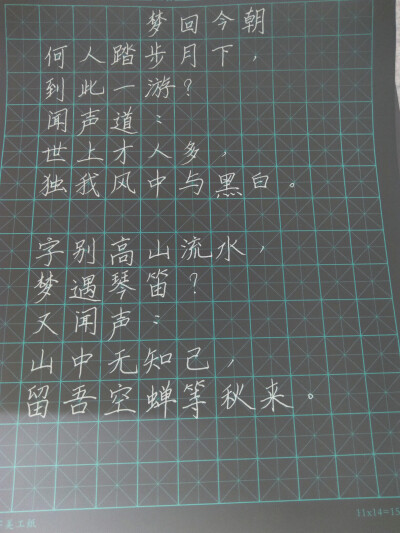 梦回今朝
何人踏步月下，
到此一游？
闻声道：
世上才人多，
独我风中与黑白。
字别高山流水，
梦遇琴笛？
又闻声：
山中无知己，
留吾空蝉等秋来。
11x14=15